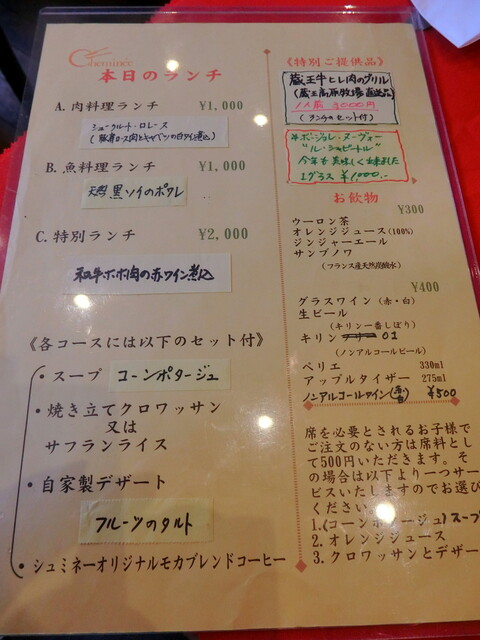 Cheminée
本日のランチ
A. 肉料理ランチ ¥1,000
シュークルート・ロレーヌ
(豚肩ロース肉とキャベツの白ワイン煮込)
B. 魚料理ランチ ¥1,000
天然黒ソイのポワレ
C. 特別ランチ ¥2,000
和牛ホホ肉の赤ワイン煮込
《各コースには以下のセット付》
・スープ コーンポタージュ
・焼き立てクロワッサン
又は
サフランライス
・自家製デザート
フルーツのタルト
・シュミネーオリジナルモカブレンドコーヒー
《特別ご提供品》
蔵王牛ヒレ肉のグリル
(蔵王高原牧場直送品)
1人前 3000円
(ランチのセット付)
ボージョレ・ヌーヴォー
"ル・シャピートル"
今年も美味しく出来ました
1グラス ¥1,000.-
お飲物
¥300
ウーロン茶
オレンジジュース(100%)
ジンジャーエール
サンブノワ
(フランス産天然炭酸水)
¥400
グラスワイン (赤・白)
生ビール
(キリン一番しぼり)
キリン 零ICHI
(ノンアルコールビール)
ペリエ 330ml
アップルタイザー 275ml
ノンアルコールワイン(赤・白) ¥500
席を必要とされるお子様で
ご注文のない方は席料とし
て500円いただきます。そ
の場合は以下より一つサー
ビスいたしますのでお選び
ください。
1.(コーンポタージュ)スープ
2. オレンジジュース
3. クロワッサンとデザー